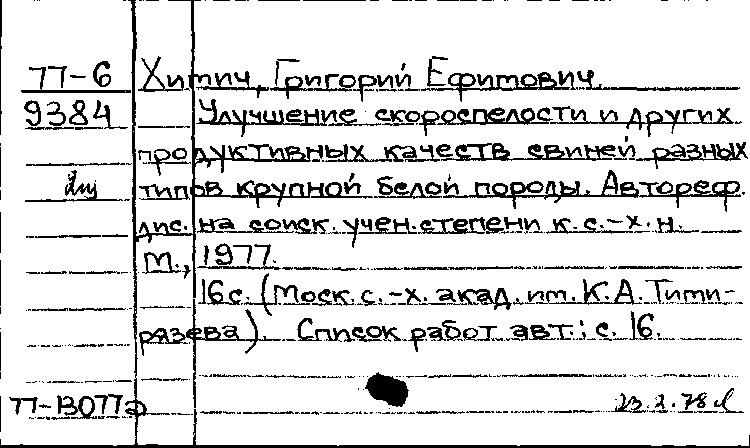 77-6 Химич, Григорий Ефимович.
9384 Улучшение скороспелости и других
продуктивных качеств свиней разных
типов крупной белой породы. Автореф.
дис. на соиск. учен. степени к. с.-х. н.
М., 1977.
16 с. (Моск. с.-х. акад. им. К. А. Тими-
рязева) Список работ авт.: с. 16.
77-13077а 23.2.78